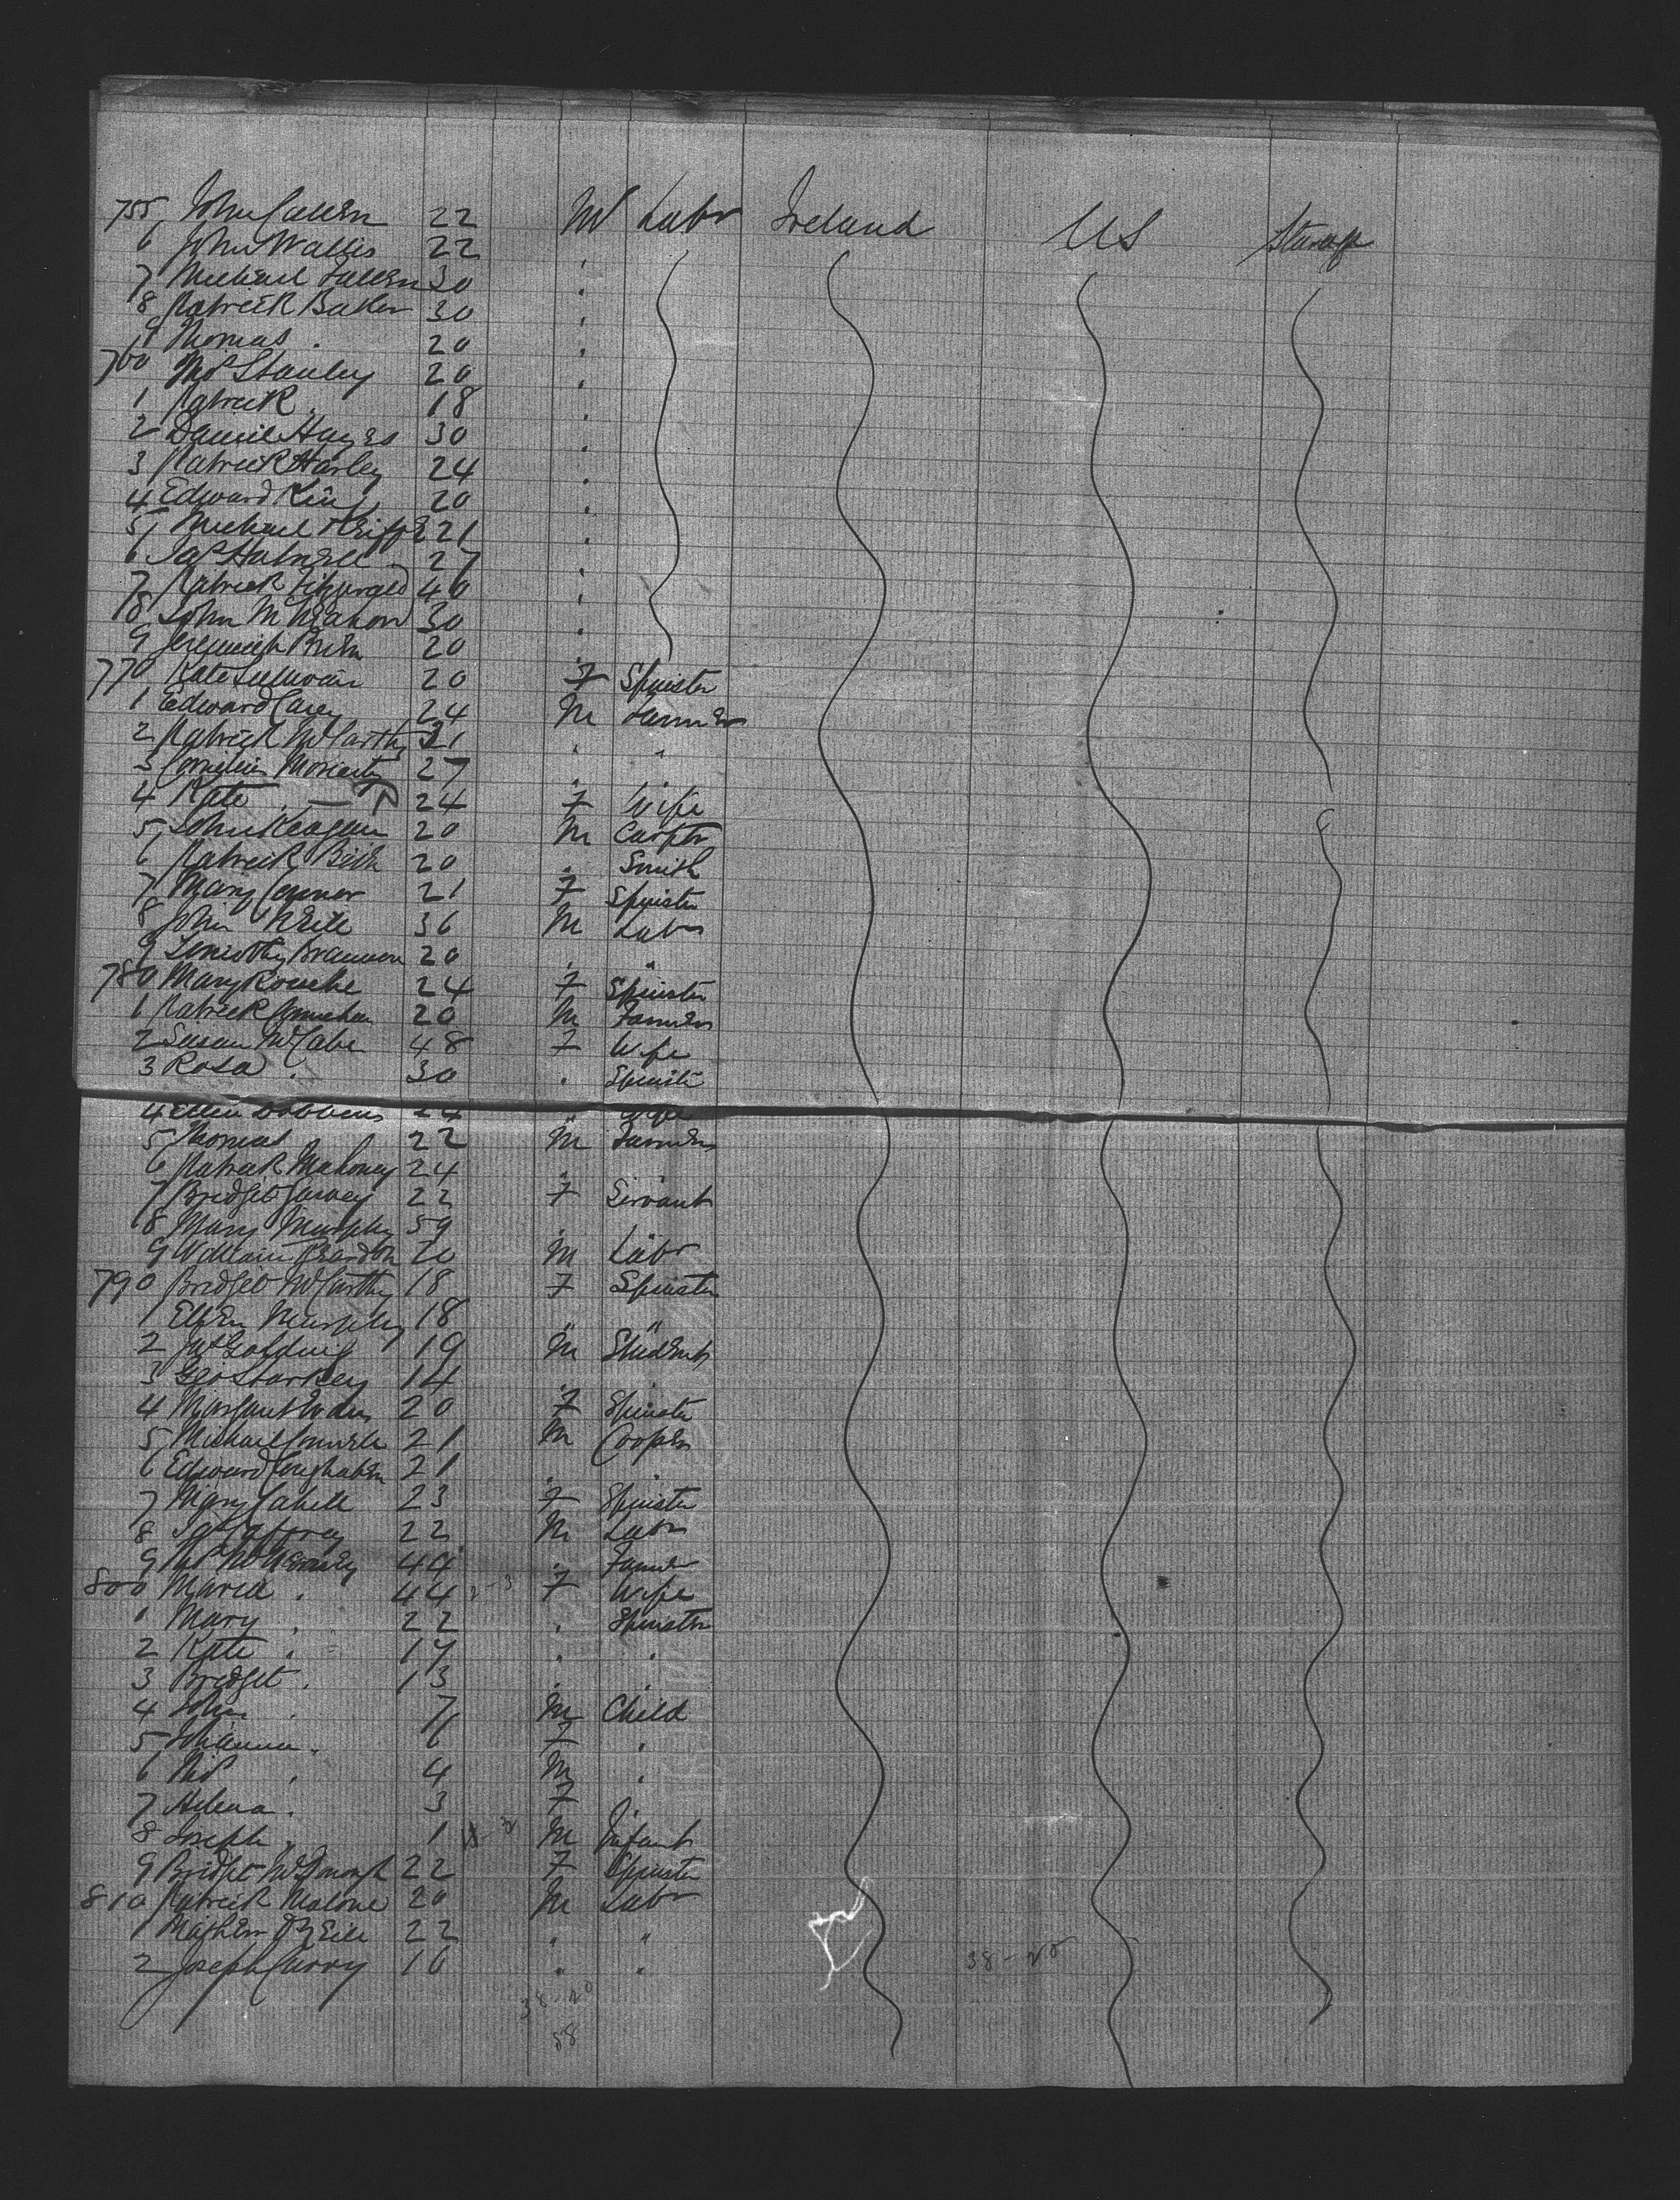 755 John Cullen 22 M Labr Ireland US Steerage
6 John Wallis 22 "
7 Michael Fallon 30 "
8 Patrick Baker 30 "
9 Thomas . 20 "
760 Mr Stanley 20 "
1 Patrick . 18 "
2 Daniel Hayes 30 "
3 Patrick Harley 24 "
4 Edward King 20 "
5 Michael 21 "
6 Jas 27 "
7 Patrick Fitzgerald 40 "
8 John McMahon 30 "
9 Jeremiah Brien 20 "
770 Kate Sullivan 20 F Spinster
1 Edward Carey 24 M Farmer
2 Patrick McCarthy 21 " "
3 Cornelius Moriarty 27 "
4 Kate . — 24 F Wife
5 John Keagan 20 M Carptr
6 Patrick 20 . Smith
7 Mary Connor 21 F Spinster
8 John Neill 36 M Labr
9 Timothy Brannon 20 . "
780 Mary Rourke 24 F Spinster
1 Patrick 20 M Farmer
2 Susan McCabe 48 F Wife
3 Rosa . 30 . Spinster
4 Ellen Dobbins 24 " Wife
5 Thomas 22 M Farmer
6 Patrick Mahoney 24 .
7 Bridget Garvey 22 F Servant
8 Mary Murphy 59 .
9 William Reardon 20 M Labr
790 Bridget McCarthy 18 F Spinster
1 Ellen Murphy 18 " "
2 Jas Golding 19 M Student
3 Geo Starkey 14 .
4 Margaret 20 F Spinster
5 Michael Connell 21 M Cooper
6 Edward 21 . .
7 Mary Cahill 23 F Spinster
8 Jas Caffrey 22 M Labr
9 44 . Farmer
800 Maria . 44 F Wife
1 Mary . 22 . Spinster
2 Kate . 17 . .
3 Bridget . 13 .
4 John . 7 M Child
5 Johanna . 6 F .
6 . 4 M .
7 Helena . 3 F .
8 Joseph . 1 M Infant
9 Bridget McDonough 22 F Spinster
810 Patrick Malone 20 M Labr
1 Mathew O'Neill 22 . "
2 Joseph Curry 10 " .
38-20
38-20
58